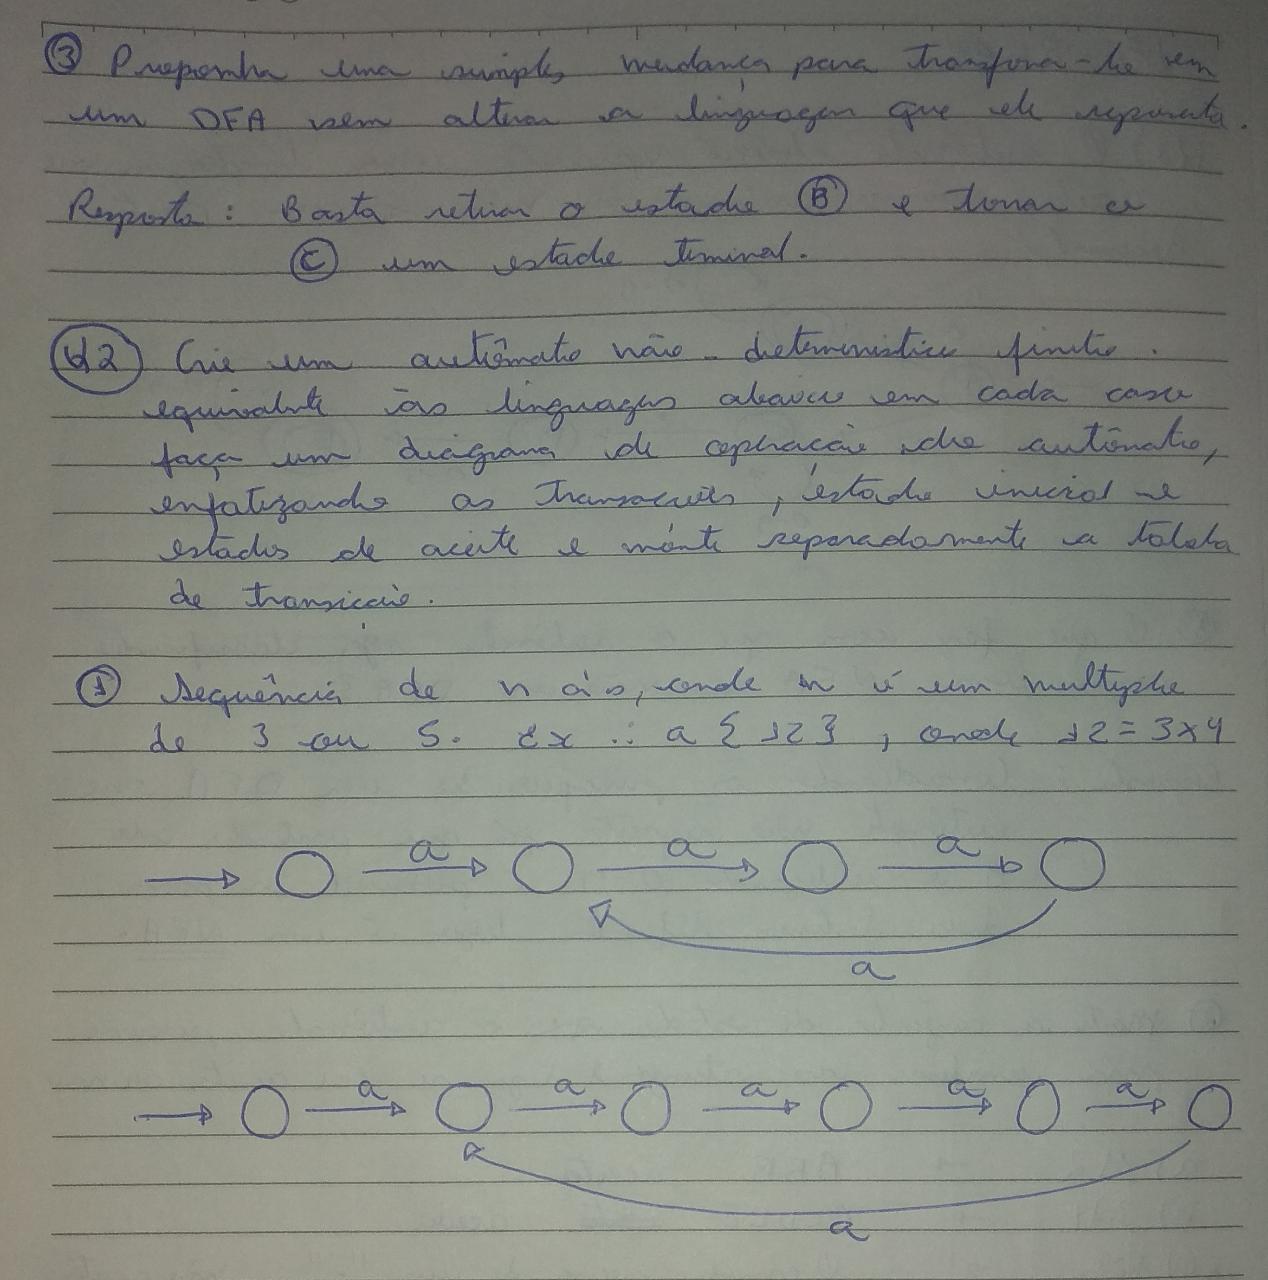 ③ Proponha uma simples mudança para transforma-lo em
um DFA sem alterar a linguagem que ele representa.
Resposta: Basta retirar o estado Ⓑ e tornar o
Ⓒ um estado terminal.
Crie um autômato não-deterministico finito.
equivalente às linguagens abaixo em cada caso
faça um diagrama de do autômato,
enfatizando as , estado inicial e
estados de aceite e monte separadamente a tabela
de transição.
① Sequência de n a's, onde n é um multiplo
de 3 ou 5. Ex ∴ a {12}, onde 12 = 3x4
a a a
a
a a a a a
a